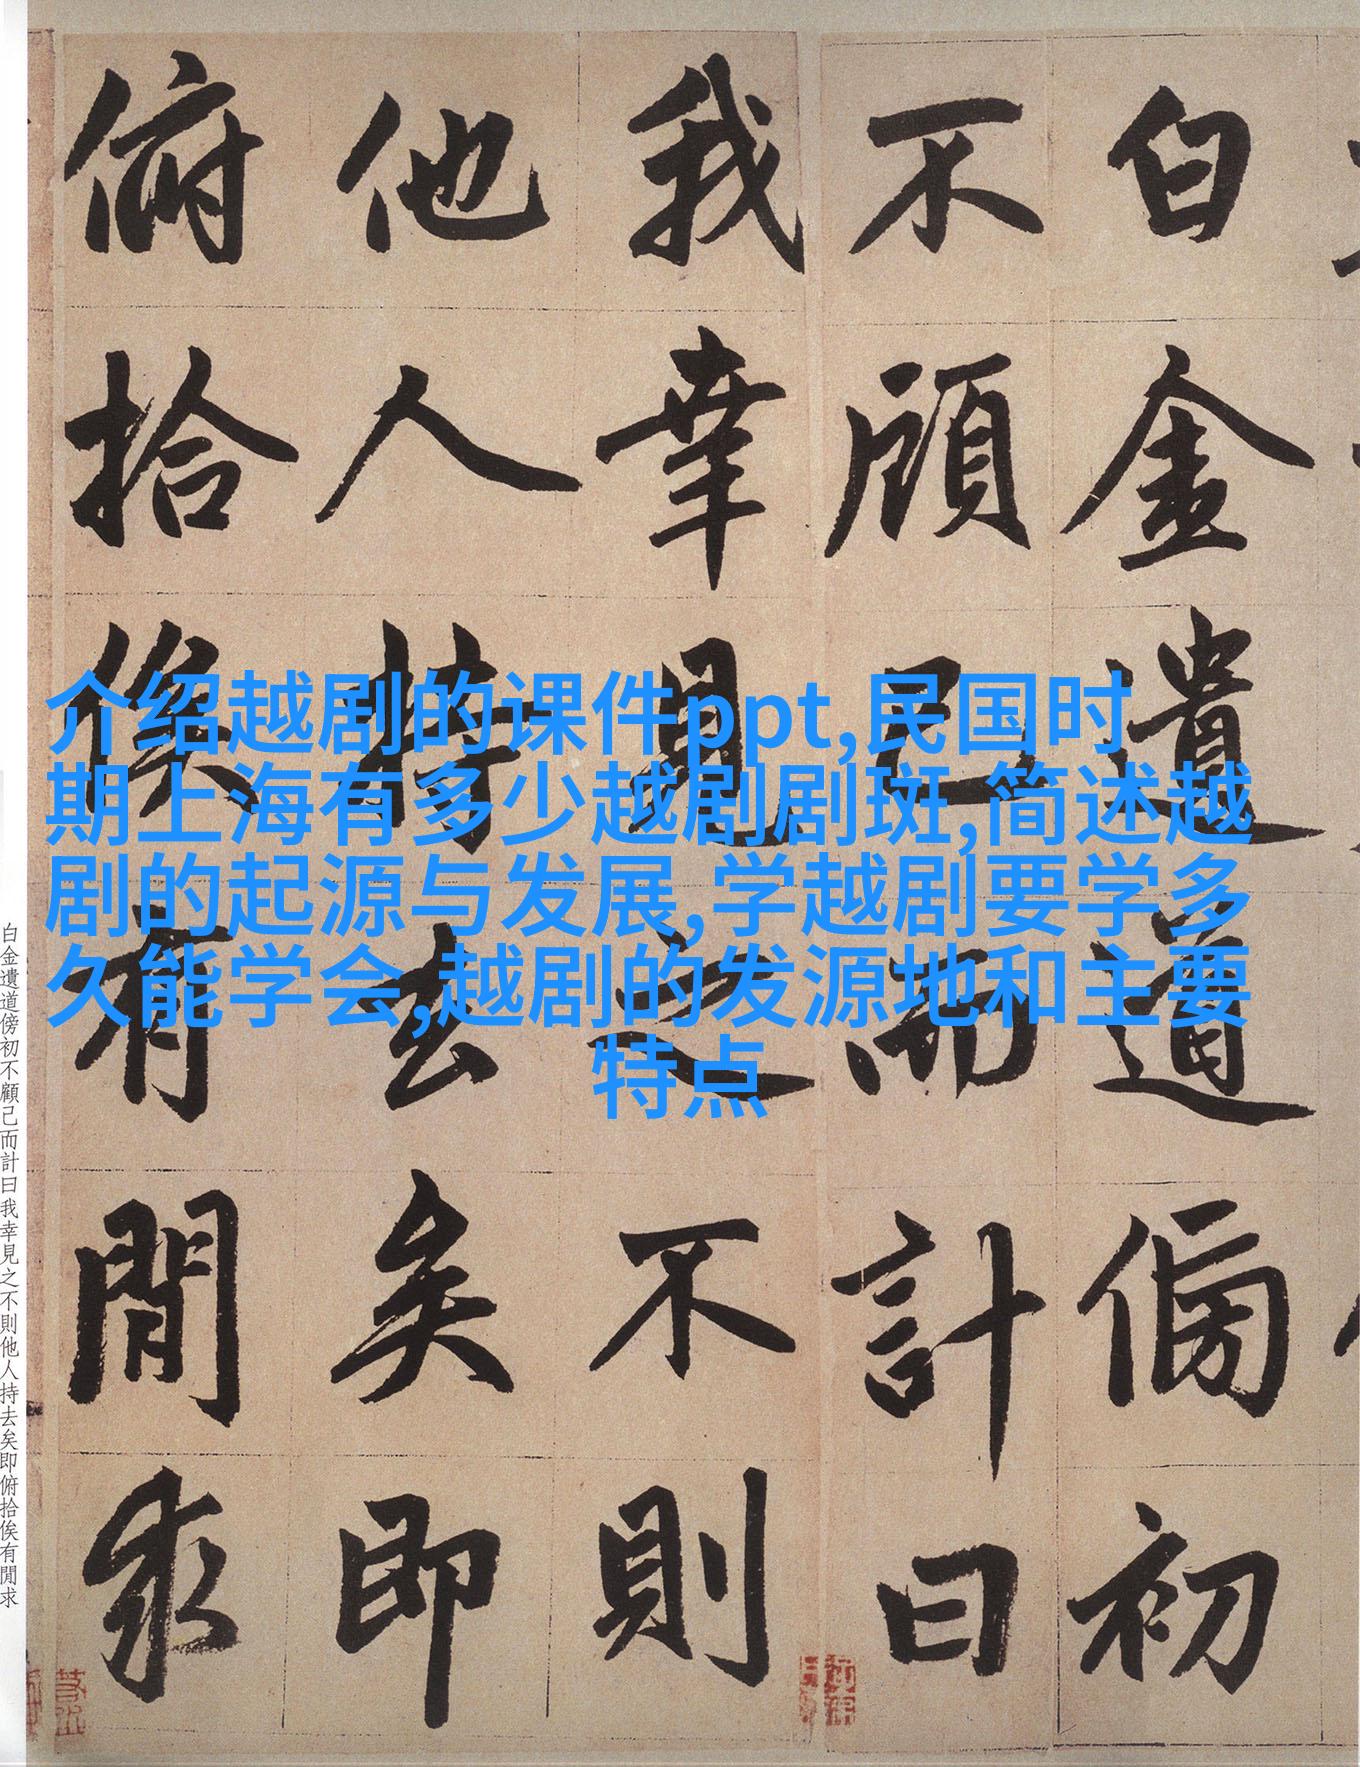 白金遺道傍初
不顧已而計曰
我幸見之不則
他人持去矣即
俯拾俟有閒求
介绍越剧的课件ppt,民国时
期上海有多少越剧剧斑,简述越
剧的起源与发展,学越剧要学多
久能学会,越剧的发源地和主要
特点
白金遺道傍初不顧己而計曰我幸見之不則他人持去矣即俯拾俟有閒求